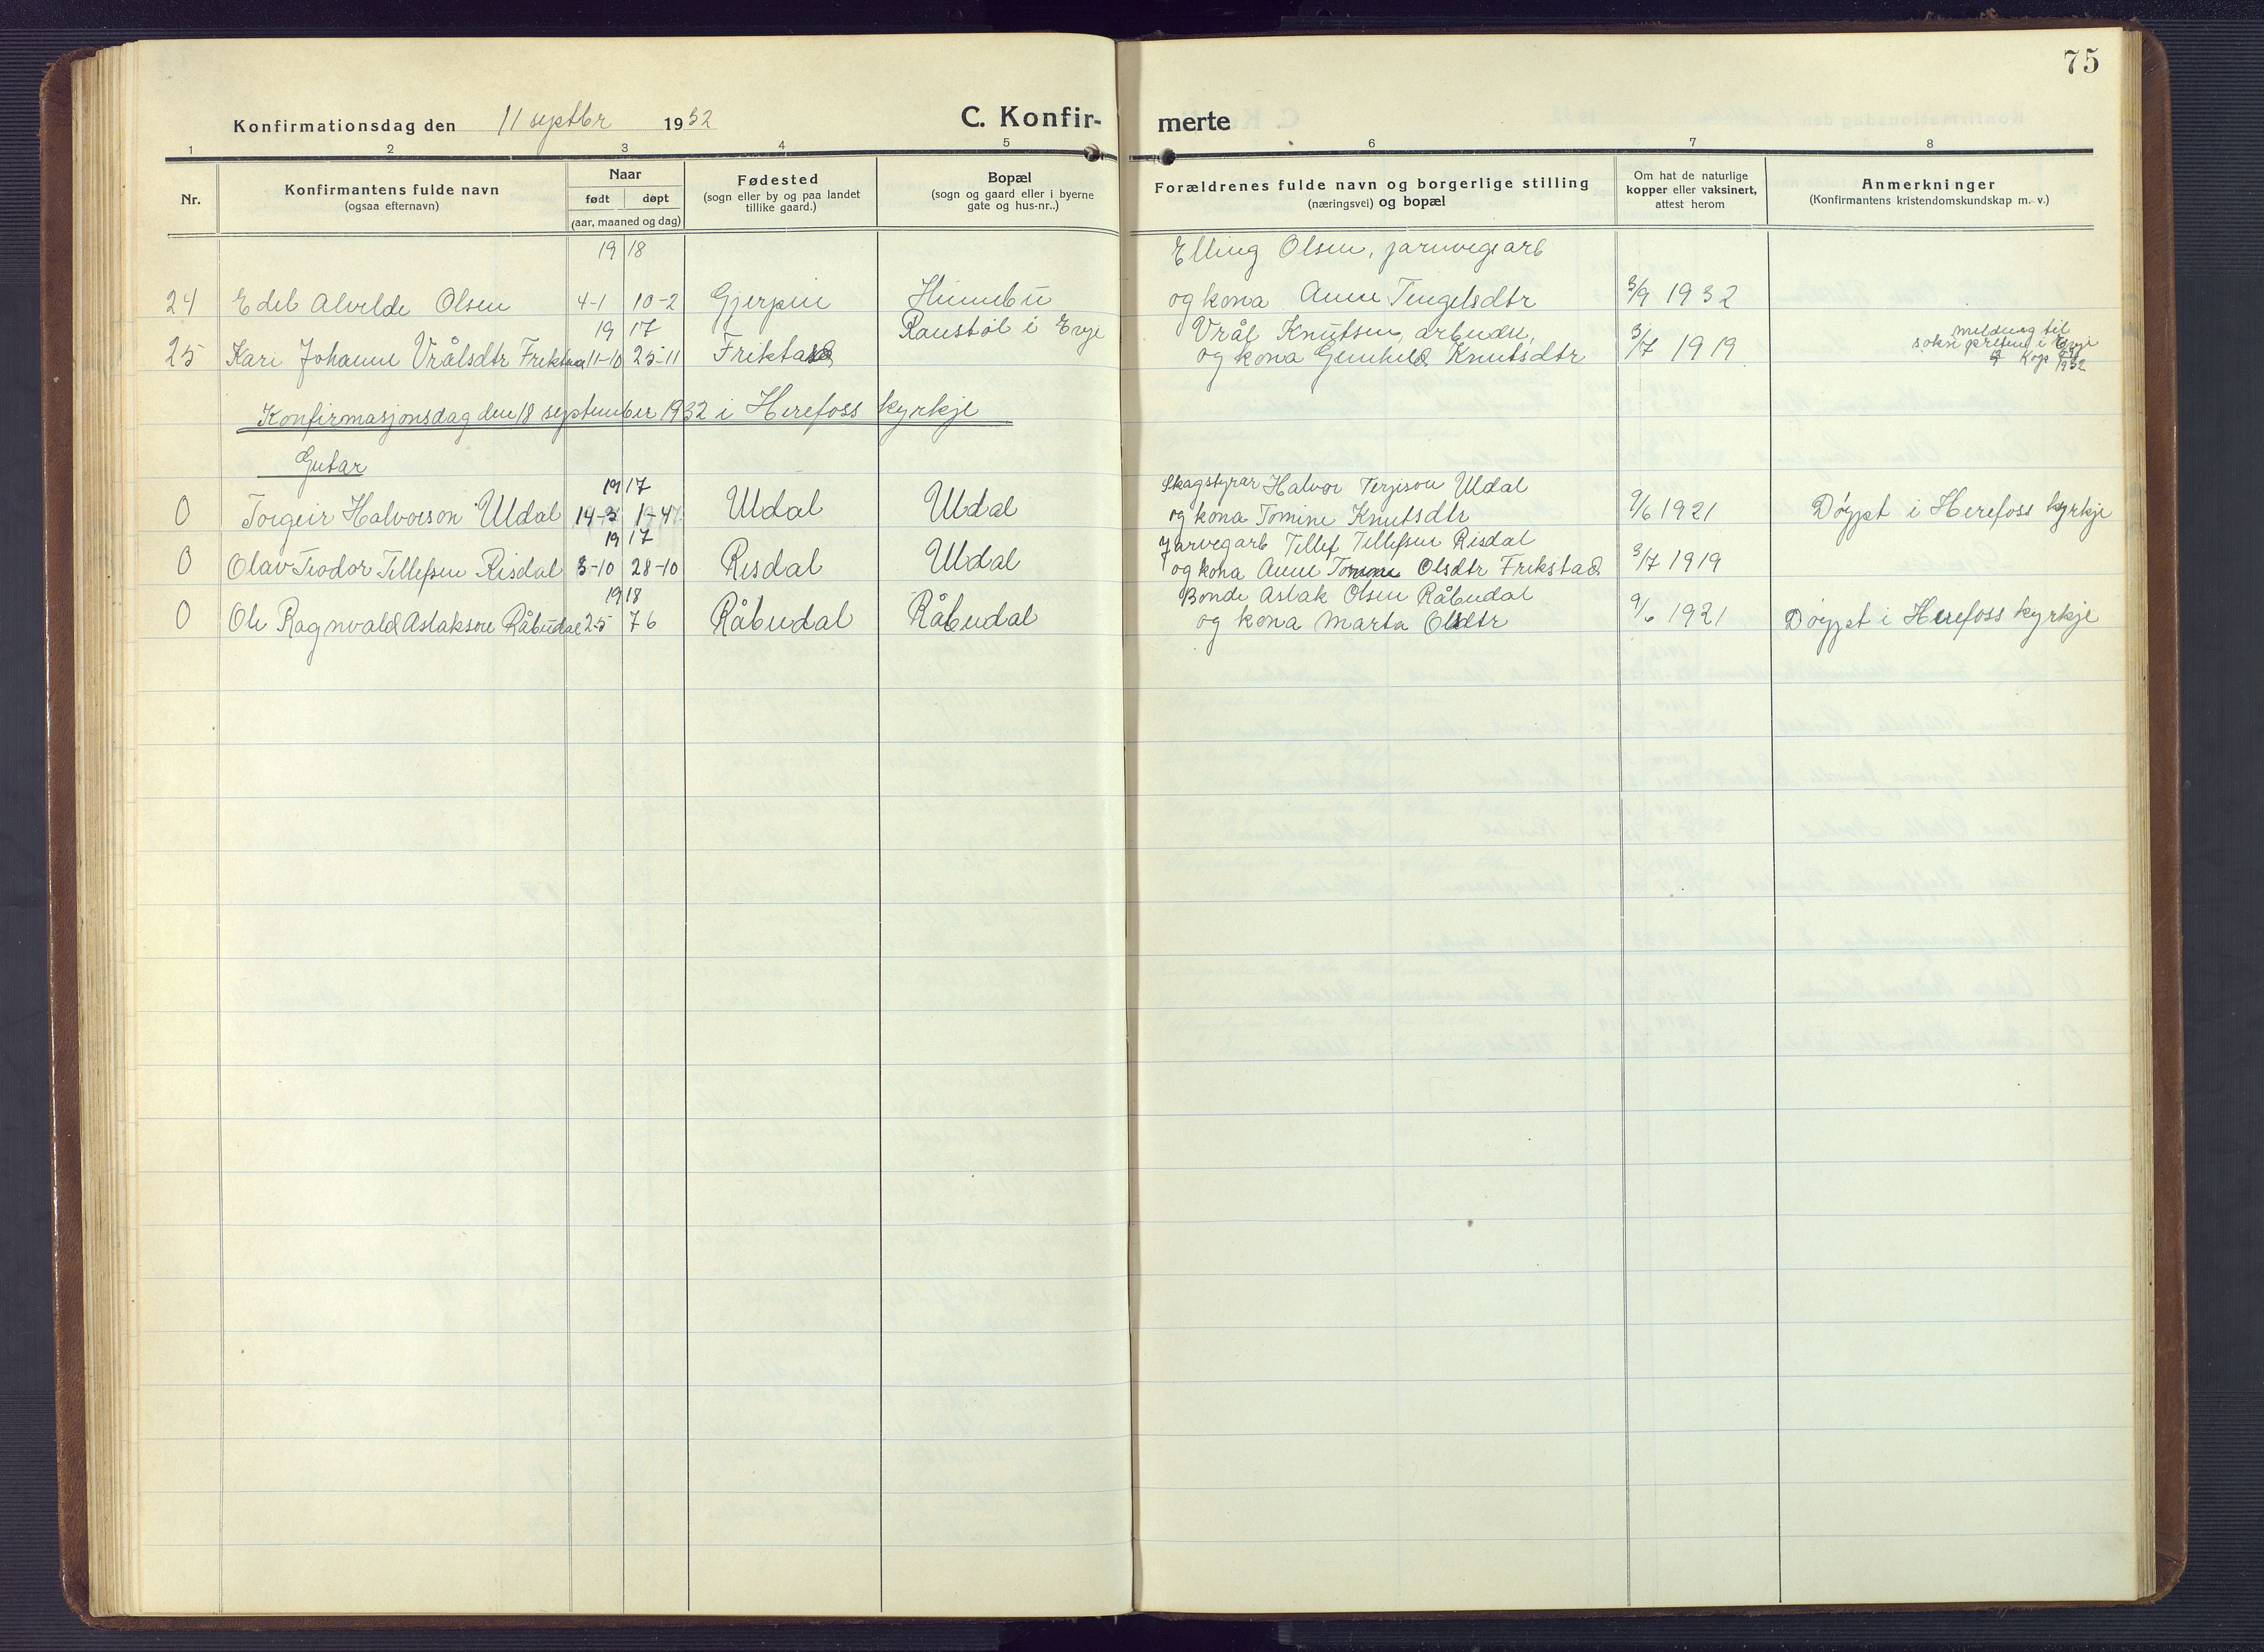 75
Konfirmationsdag den 11 septbr 1932
C. Konfir-
merte
1 2 3 4 5 6 7 8
Nr.
Konfirmantens fulde navn
(ogsaa efternavn)
Naar
født døpt
(aar, maaned og dag)
Fødested
(sogn eller by og paa landet
tillike gaard.)
Bopæl
(sogn og gaard eller i byerne
gate og hus-nr..)
Forældrenes fulde navn og borgerlige stilling
(næringsvei) og bopæl
Om hat de naturlige
kopper eller vaksinert,
attest herom
Anmerkninger
(Konfirmantens kristendomskundskap m. v.)
19 18 Elling Olsen, jarnvegsarb
24 Edel Alvilde Olsen 4-1 10-2 Gjerpen og kona Anne Tengelsdtr 3/9 1932
19 17 Raustøl i Evje Vrål Knutsen, arbeidr, melding til
25 Kari Johanne Vrålsdtr Frikstad 11-10 25-11 Frikstad og kona Gunhild Knutsdtr 3/7 1919 sokneprest i Evje
Konfirmasjonsdag den 18 september 1932 i Herefoss kyrkje
Gutar
19 17 Skogstyrar Halvor Terjison Uldal
0 Torgeir Halvorson Uldal 14-3 1-4 Uldal Uldal og kona Tomine Knutsdtr 9/6 1921 Døypt i Herefoss kyrkje
19 17 Jarvegarb Tellef Tellefsen Risdal
0 Olav Teodor Tellefsen Risdal 3-10 28-10 Risdal Uldal og kona Anne Tomine Olsdtr Frikstad 3/7 1919
19 18 Bonde Aslak Olsen Råbudal
0 Ole Ragnvald Aslakson Råbudal 25 76 Råbudal Råbudal og kona Marta Olsdtr 9/6 1921 Døypt i Herefoss kyrkje